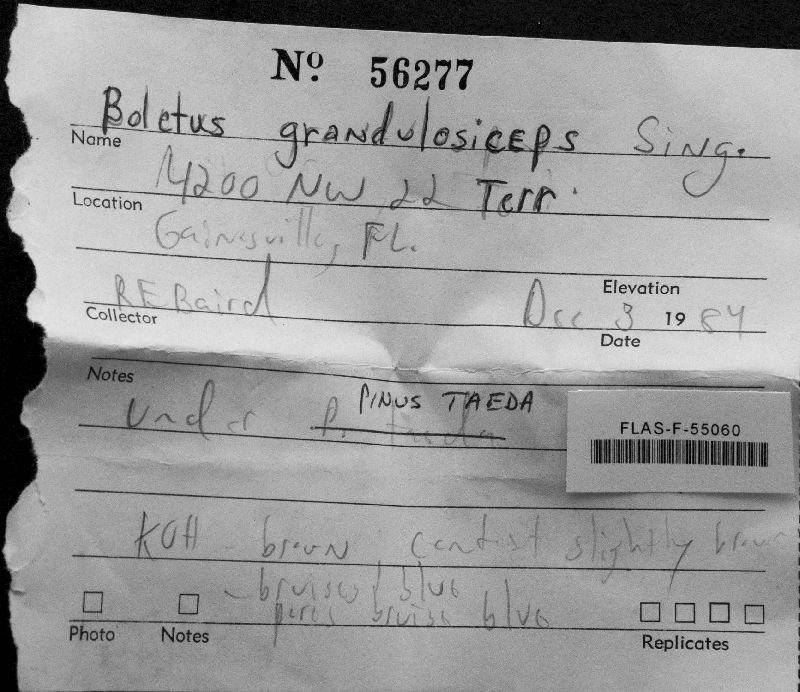 Nº 56277
Boletus grandulosiceps Sing.
Name
4200 NW 22 Terr.
Location
Gainesville, FL.
Elevation
R E Baird Dec 3 19 84
Collector
Date
Notes
Under P. taeda PINUS TAEDA
FLAS-F-55060
KOH - brown slightly brown
- bruises blue
pores bruise blue
Photo Notes Replicates